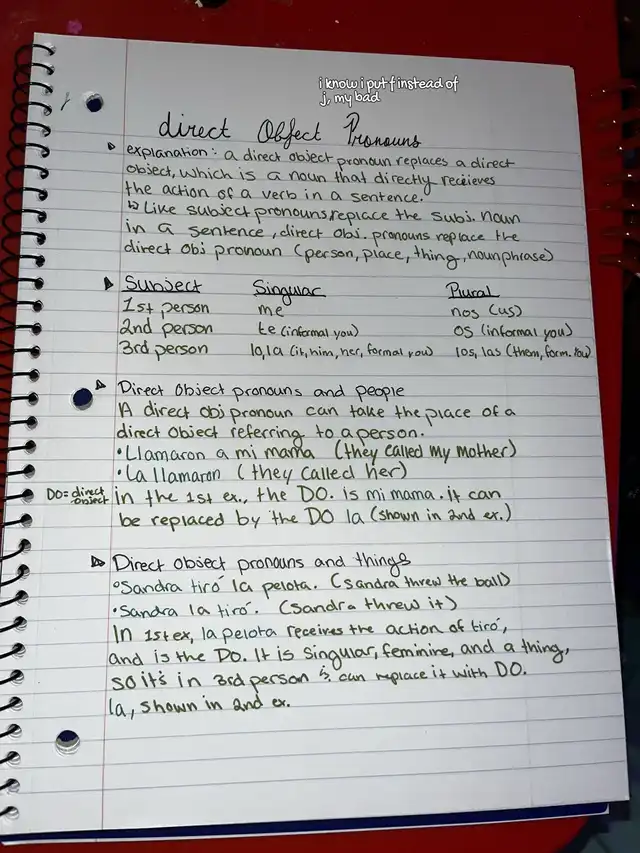 i know i put f instead of
j, my bad
direct Obfect Pronouns
explanation: a direct object pronoun replaces a direct
object, which is a noun that directly recieves
the action of a verb in a sentence.
↳ Like subject pronouns, replace the subj. noun
in a sentence, direct obj. pronouns replace the
direct obj pronoun (person, place, thing, noun phrase)
Subject Singular Plural
1st person me nos (us)
2nd person te (informal you) os (informal you)
3rd person lo, la (it, him, her, formal you) los, las (them, form. you)
Direct Object pronouns and people
A direct obj pronoun can take the place of a
direct object referring to a person.
• Llamaron a mi mama (they called my mother)
• La llamaron (they called her)
DO = direct object
in the 1st ex., the DO. is mi mama. it can
be replaced by the DO la (shown in 2nd ex.)
Direct object pronouns and things
• Sandra tiró la pelota. (Sandra threw the ball)
• Sandra la tiró. (Sandra threw it)
In 1st ex, la pelota receives the action of tiró,
and is the DO. It is singular, feminine, and a thing,
so it's in 3rd person & can replace it with DO.
la, shown in 2nd ex.